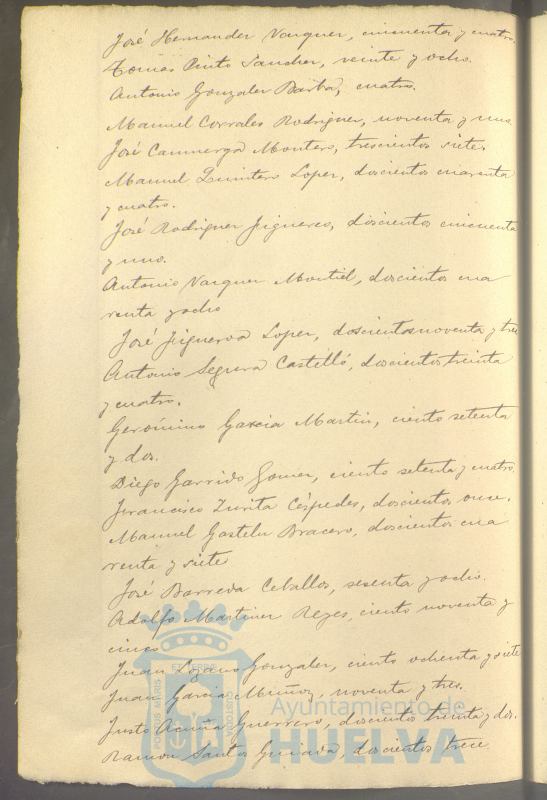 José Hernander Varquer, cincuenta y cuatro.
Tomás Pinto Sancher, veinte y ocho.
Antonio Gonzaler Barba, cuatro.
Manuel Corrales Rodriguer, noventa y uno
José Canmerga Montero, trescientos siete.
Manuel Quintero Loper, doscientos cuarenta
y cuatro.
José Rodriguer Figueres, doscientos cincuenta
y uno.
Antonio Varquer Montiel, doscientos cua
renta y ocho
José Figueroa Loper, doscientos noventa y tres
Antonio Segura Castelló, doscientos treinta
y cuatro.
Gerónimo Garcia Martin, ciento setenta
y dos.
Diego Garrido Gomer, ciento setenta y cuatro.
Francisco Zurita Céspedes, doscientos once.
Manuel Gastelu Bracero, doscientos cua
renta y siete
José Barreda Ceballos, sesenta y ocho.
Adolfo Martiner Reyes, ciento noventa y
cinco
Juan Lozano Gonzaler, ciento ochenta y siete
Juan Garcia Muñoz, noventa y tres.
Justo Acuña Guerrero, doscientos treinta y dos.
Ramon Santos Guirada, doscientos trece
PORTUS MARIS ET TERRE CUSTODIA
Ayuntamiento de
HUELVA